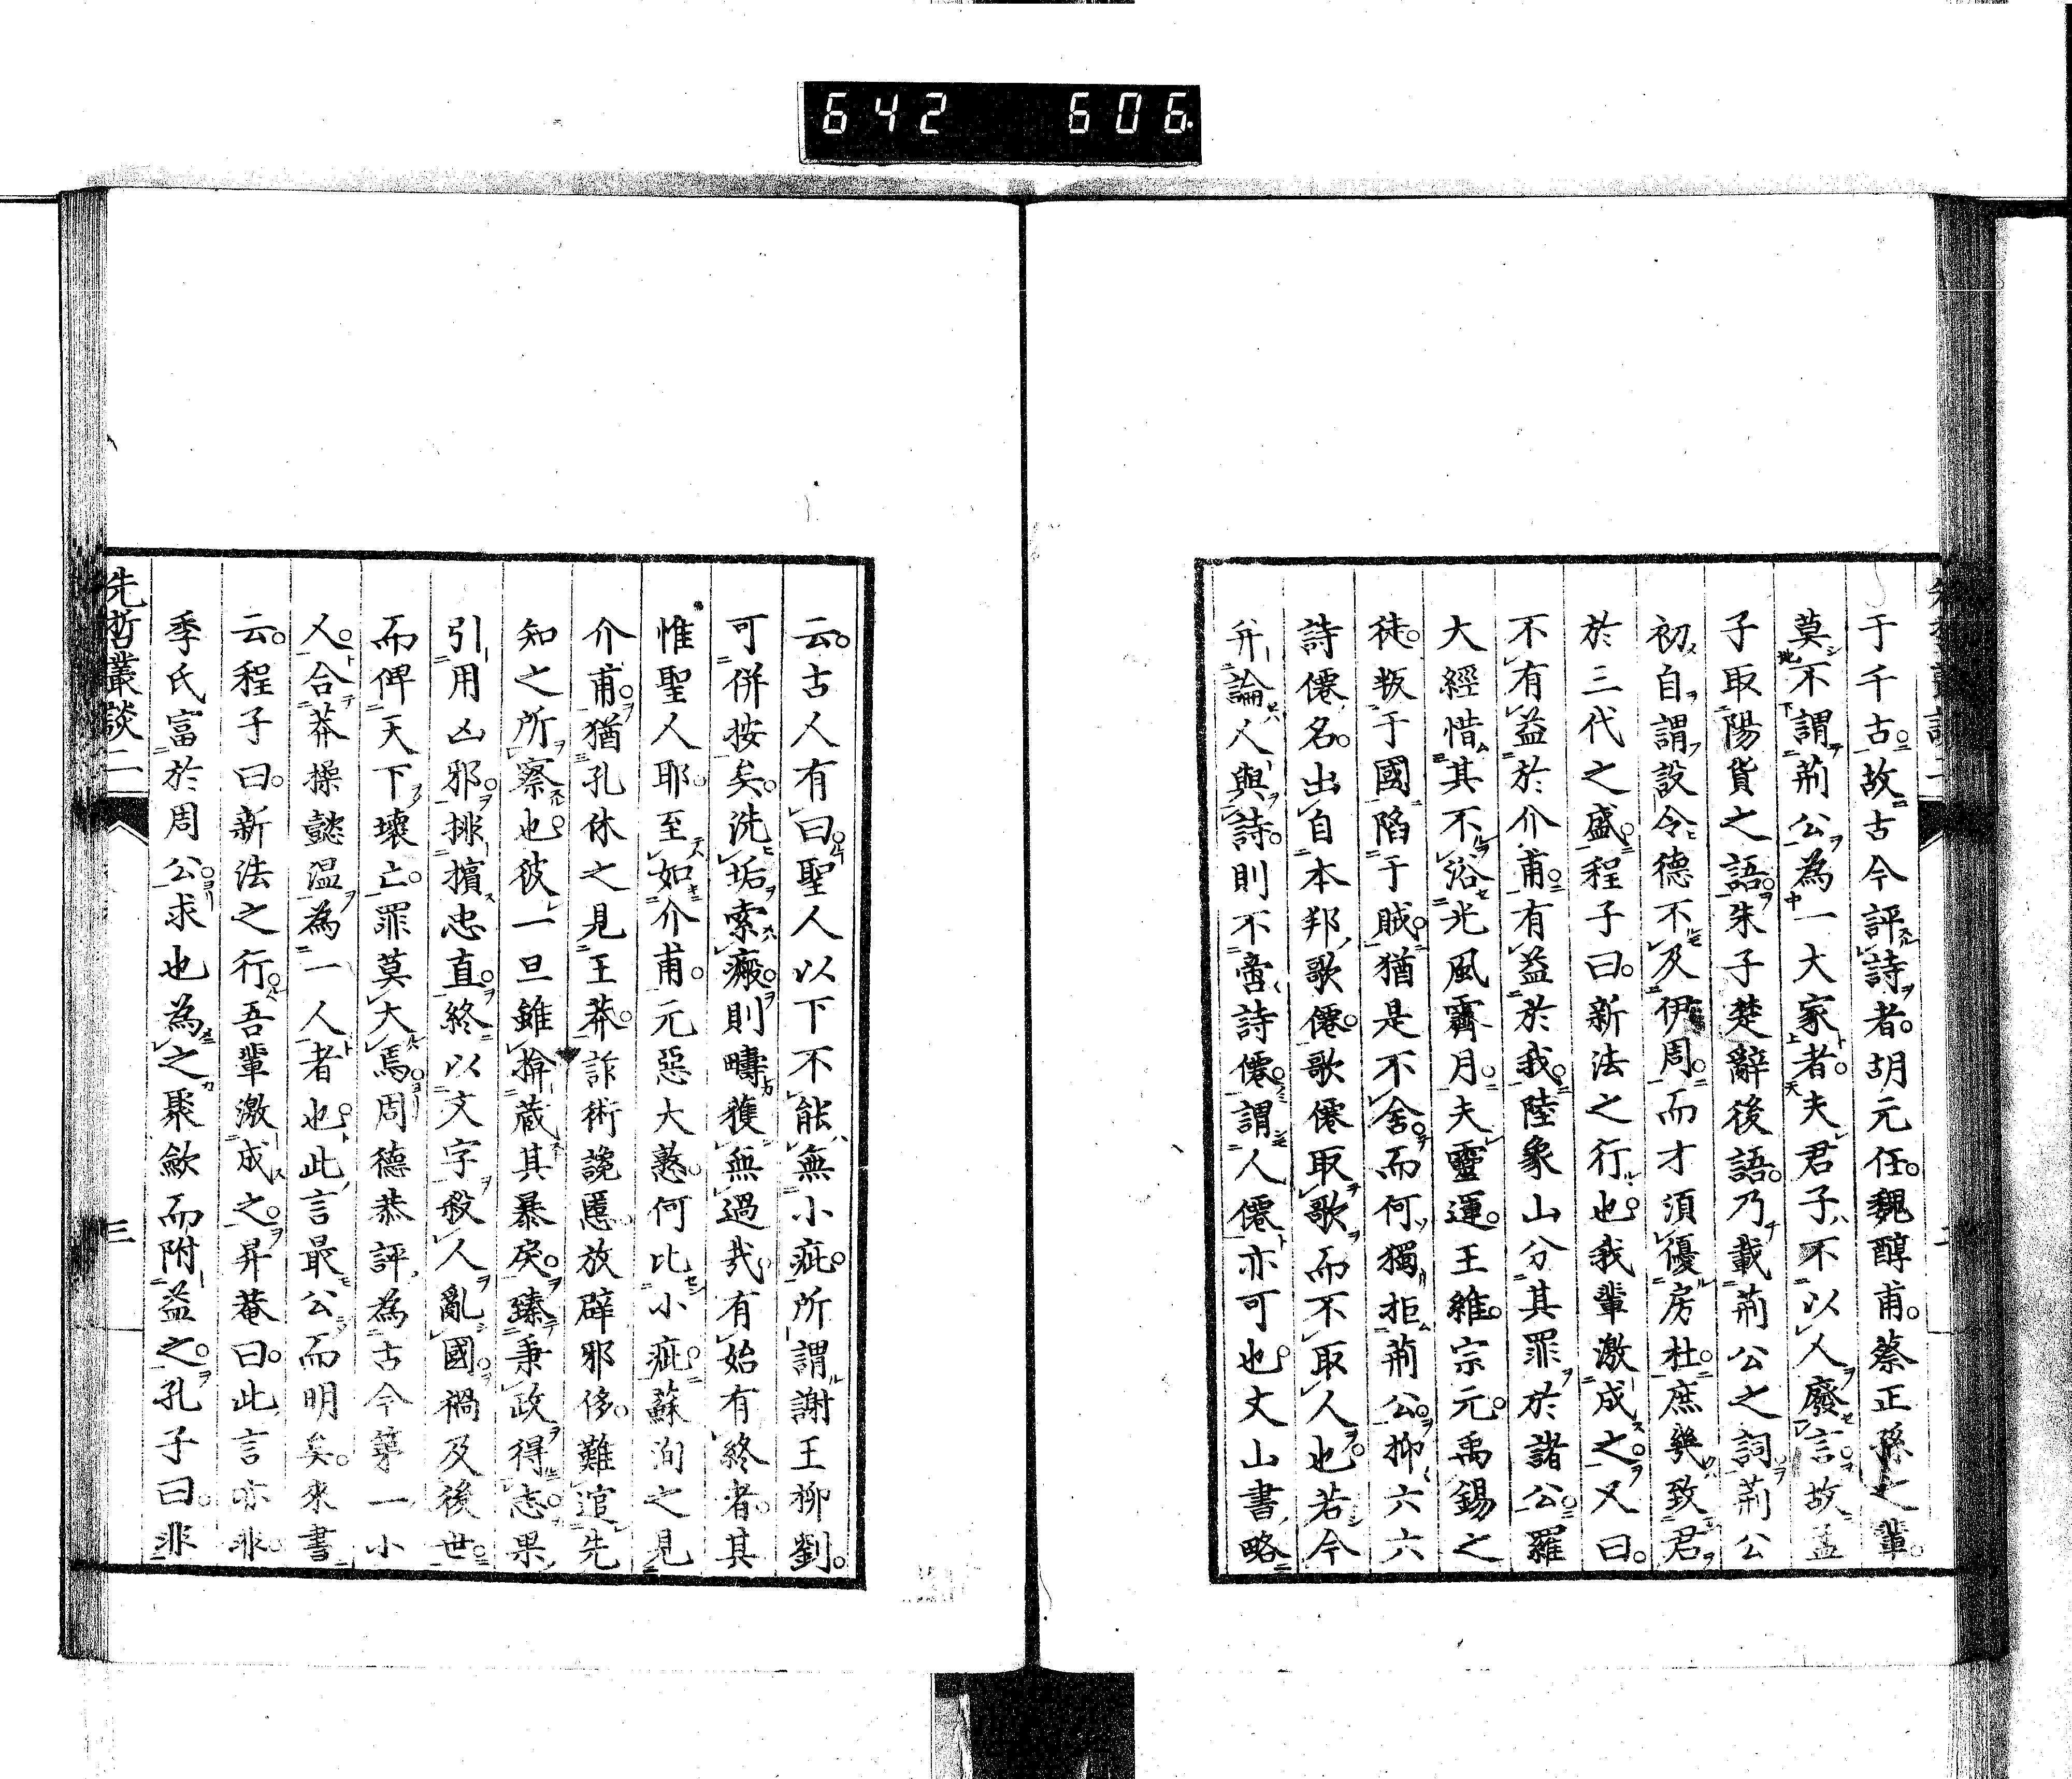 642 606
于千古故古今評詩者胡元任魏醇甫蔡正孫之輩
莫不謂荊公為一大家者夫君子不以人廢言故孟
子取陽貨之語朱子楚辭後語乃載荊公之詞荊公
初自謂設令德不及伊周而才須優房杜庶幾致君
於三代之盛程子曰新法之行也我輩激成之又曰
不有益於介甫有益於我陸象山分其罪於諸公羅
大經惜其不浴光風霽月夫靈運王維宗元禹錫之
徒叛于國陷于賊猶是不舍而何獨拒荊公抑六六
詩僊名出自本邦歌僊歌僊取歌而不取人也若今
并論人與詩則不啻詩僊謂人僊亦可也丈山書略
云古人有曰聖人以下不能無小疵所謂謝王柳劉
可併按矣洗垢索瘢則疇獲無過哉有始有終者其
惟聖人耶至如介甫元惡大憝何比小疵蘇洵之見
介甫猶孔休之見王莽詐術讒慝放辟邪侈難逭先
知之所察也彼一旦雖揜蔵其暴戾臻秉政得志果
引用凶邪排擯忠直終以文字殺人亂國禍及後世
而俾天下壞亡罪莫大焉周德恭評為古今第一小
人合莽操懿温為一人者也此言最公而明矣來書
云程子曰新法之行吾輩激成之昇菴曰此言亦非
季氏富於周公求也為之聚歛而附益之孔子曰非
先哲叢談二
三